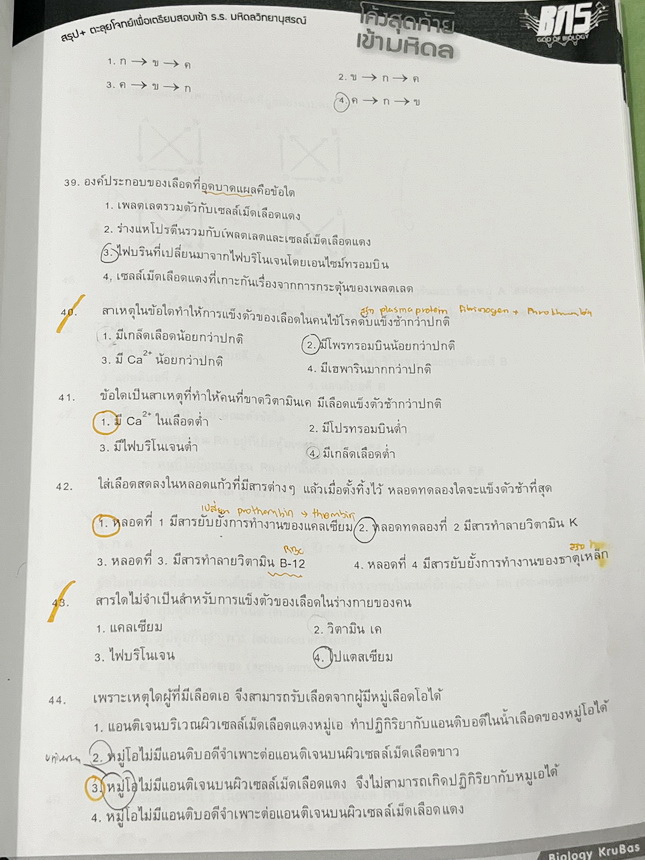 สรุป+ ตะลุยโจทย์เพื่อเตรียมสอบเข้า ร.ร. มหิดลวิทยานุสรณ์
โค้งสุดท้าย
เข้ามหิดล
BAS
GOD OF BIOLOGY
1. ก → ข → ค
2. ข → ก → ค
3. ค → ข → ก
4. ค → ก → ข
39. องค์ประกอบของเลือดที่อุดบาดแผลคือข้อใด
1. เพลตเลตรวมตัวกับเซลล์เม็ดเลือดแดง
2. ร่างแหโปรตีนรวมกับเพลตเลตและเซลล์เม็ดเลือดแดง
3. ไฟบรินที่เปลี่ยนมาจากไฟบริโนเจนโดยเอนไซม์ทรอมบิน
4. เซลล์เม็ดเลือดแดงที่เกาะกันเนื่องจากการกระตุ้นของเพลตเลต
plasma protein Fibrinogen + Prothrombin
40. สาเหตุในข้อใดทำให้การแข็งตัวของเลือดในคนไข้โรคตับแข็งช้ากว่าปกติ
1. มีเกล็ดเลือดน้อยกว่าปกติ
2. มีโพรทรอมบินน้อยกว่าปกติ
3. มี Ca2+ น้อยกว่าปกติ
4. มีเฮพารินมากกว่าปกติ
41. ข้อใดเป็นสาเหตุที่ทำให้คนที่ขาดวิตามินเค มีเลือดแข็งตัวช้ากว่าปกติ
1. มี Ca2+ ในเลือดต่ำ
2. มีโปรทรอมบินต่ำ
3. มีไฟบริโนเจนต่ำ
4. มีเกล็ดเลือดต่ำ
42. ใส่เลือดสดลงในหลอดแก้วที่มีสารต่างๆ แล้วเมื่อตั้งทิ้งไว้ หลอดทดลองใดจะแข็งตัวช้าที่สุด
เปลี่ยน prothombin → thombin
1. หลอดที่ 1 มีสารยับยั้งการทำงานของแคลเซียม
2. หลอดทดลองที่ 2 มีสารทำลายวิตามิน K
RBC
3. หลอดที่ 3. มีสารทำลายวิตามิน B-12
4. หลอดที่ 4 มีสารยับยั้งการทำงานของธาตุเหล็ก
43. สารใดไม่จำเป็นสำหรับการแข็งตัวของเลือดในร่างกายของคน
1. แคลเซียม
2. วิตามิน เค
3. ไฟบริโนเจน
4. โปแตสเซียม
44. เพราะเหตุใดผู้ที่มีเลือดเอ จึงสามารถรับเลือดจากผู้มีหมู่เลือดโอได้
1. แอนติเจนบริเวณผิวเซลล์เม็ดเลือดแดงหมู่เอ ทำปฏิกิริยากับแอนติบอดีในน้ำเลือดของหมู่โอได้
2. หมู่โอไม่มีแอนติบอดีจำเพาะต่อแอนติเจนบนผิวเซลล์เม็ดเลือดขาว
3. หมู่โอไม่มีแอนติเจนบนผิวเซลล์เม็ดเลือดแดง จึงไม่สามารถเกิดปฏิกิริยากับหมู่เอได้
4. หมู่โอไม่มีแอนติบอดีจำเพาะต่อแอนติเจนบนผิวเซลล์เม็ดเลือดแดง
Biology KruBas